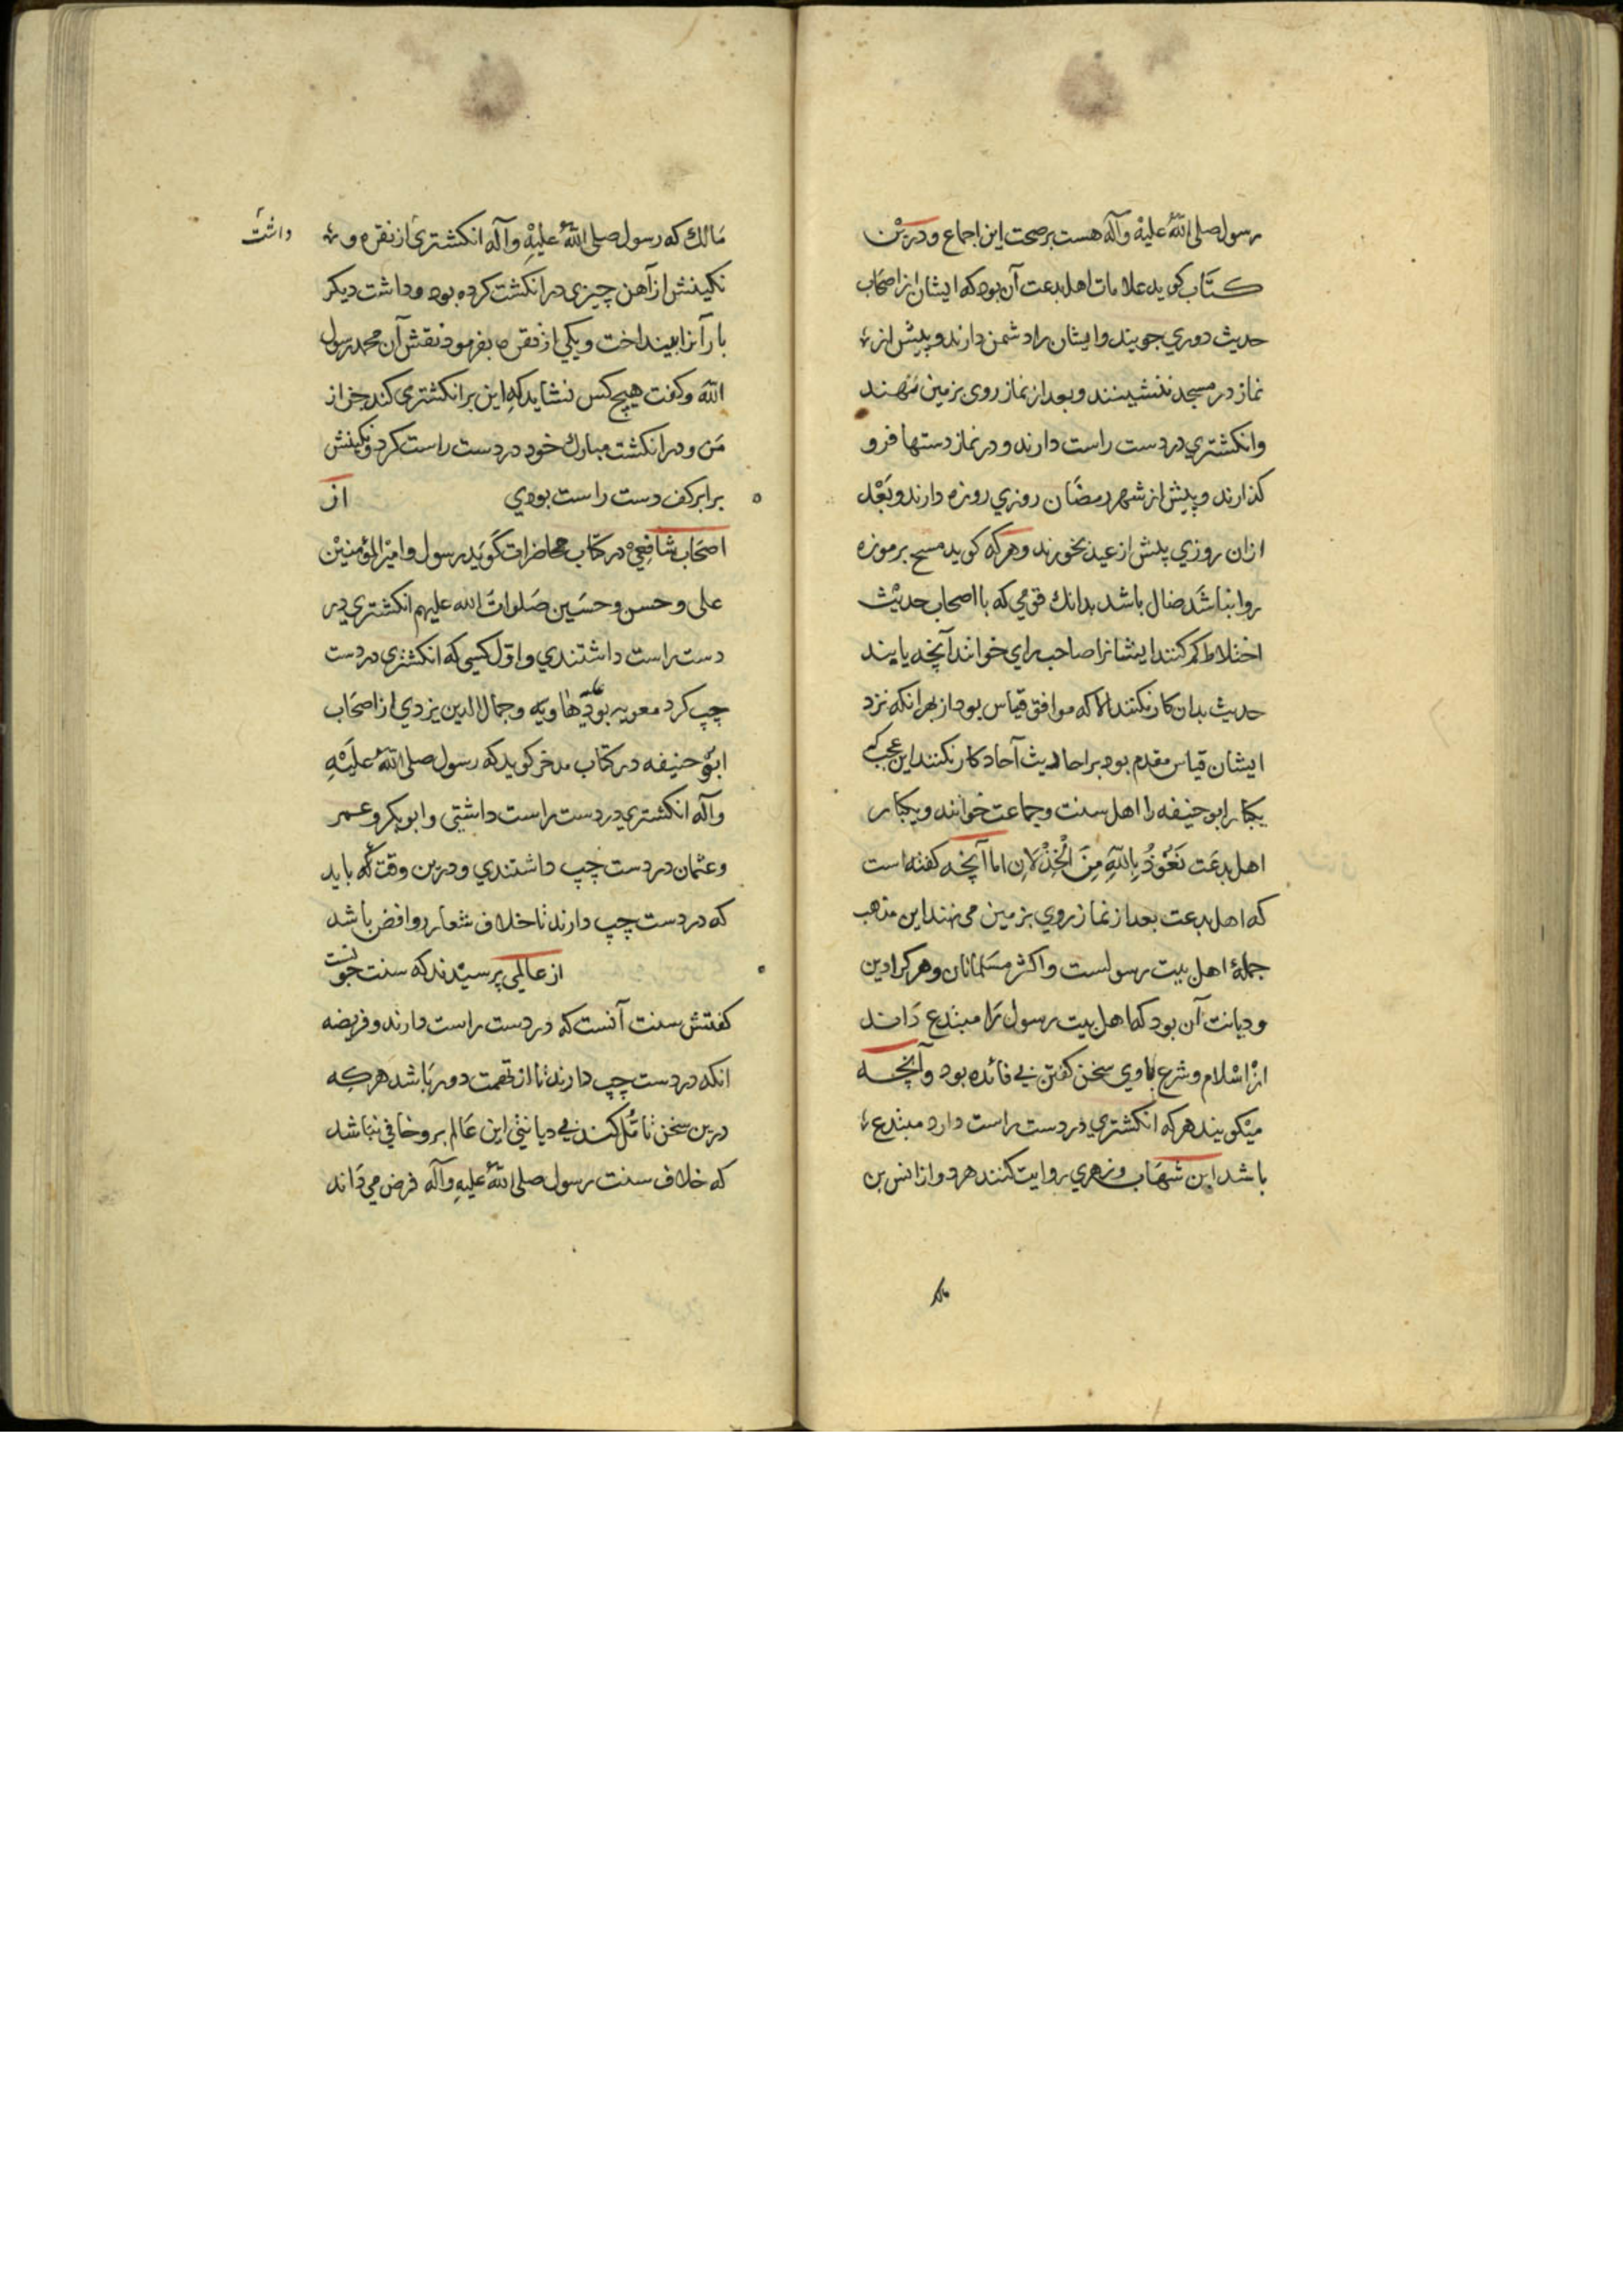 رسول صلی اللهُ علیْه وآله هست بر صحت این اجماع ودریْن
کتاب کوید علامات اهل بدعت آن بود که ایشان از اصحَاب
حدیث دوری جویند وایشان را دشمن دارند وپیش از
نماز در مسجد ننشینند وبعد از نماز روی بر زمین نهند
وانکشتری در دست راست دارند ودر نماز دستها فرو
کذارند وپیش از شهر رمضَان روزی روزه دارند وبَعْد
ازان روزی پیش از عید بخورند وهر که کوید مسح بر موزه
روا نباشَد ضال باشد بدانك قومی که با اصحاب حدیْث
اختلاط کم کنند ایشانرا صاحب رای خوانند آنچه یابند
حدیث بدان کار نکنند الا که موافق قیاس بود از بهر انکه نزد
ایشان قیاس مقدم بود بر احادیث آحاد کار نکنند این عجب که
یکبار ابو حنیفه را اهل سنت وجماعت خوانند ویکبار
اهل بدعَت نَعُوْذُ بِاللهِ مِنَ الْخِذْلَانِ اما آنچه کفته است
که اهل بدعت بعد از نماز روی بر زمین می نهند این مذهب
جملهٔ اهل بیت رسولست واکثر مسَلمانان وهر کرا دین
ودیانت آن بود که اهل بیت رسول رَا مبتدع دَاند
ازْ اسْلام وشرع باوی سخن کفتن بی فائده بود وآنچه
میکویند هر که انکشتری در دست راست دارد مبتدع
باشد ابن شهَاب وزهری روایت کنند هر دو از انس بن
مَالك که رسول صلی اللهُ علیْهِ وآله انکشتری از نقره و داشت
نکینش از آهن چیزی در انکشت کرده بود وداشت دیکر
بار آنرا بینداخت ویکی از نقره بفرمود نقش آن محمد رسول
الله وکفت هیچ کس نشاید که این بر انکشتری کند جز از
مَن ودر انکشت مبارك خود در دست راست کرد ونکینش
برابر کف دست راست بودی از
اصحَاب شافعی در کتاب محاضرات کَوید رسول وامیْر المؤمنیْن
علی وحسن وحسَین صَلوات الله علیهم انکشتری در
دست راست داشتندی واوّل کسی که انکشتری در دست
چپ کرد معویه بود علیه هاویه وجمال الدین یزدی از اصحَاب
ابو حنیفه در کتاب مدخر کوید که رسول صلی اللهُ علیَهِ
وآله انکشتری در دست راست داشتی وابوبکر وعمر
وعثمان در دست چپ داشتندی ودرین وقت که باید
که در دست چپ دارند تا خلاف شعار روافض باشد
از عالمی پرسیْدند که سنت چونست
کفتش سنت آنست که در دست راست دارند وفریضه
انکه در دست چپ دارند تا از تهمت دور بَاشد هر که
درین سخن تامُّل کند بی دیانتی این عَالم برو خافی نباشد
که خلاف سنت رسول صلی اللهُ علیهِ وآله فرض می دَاند